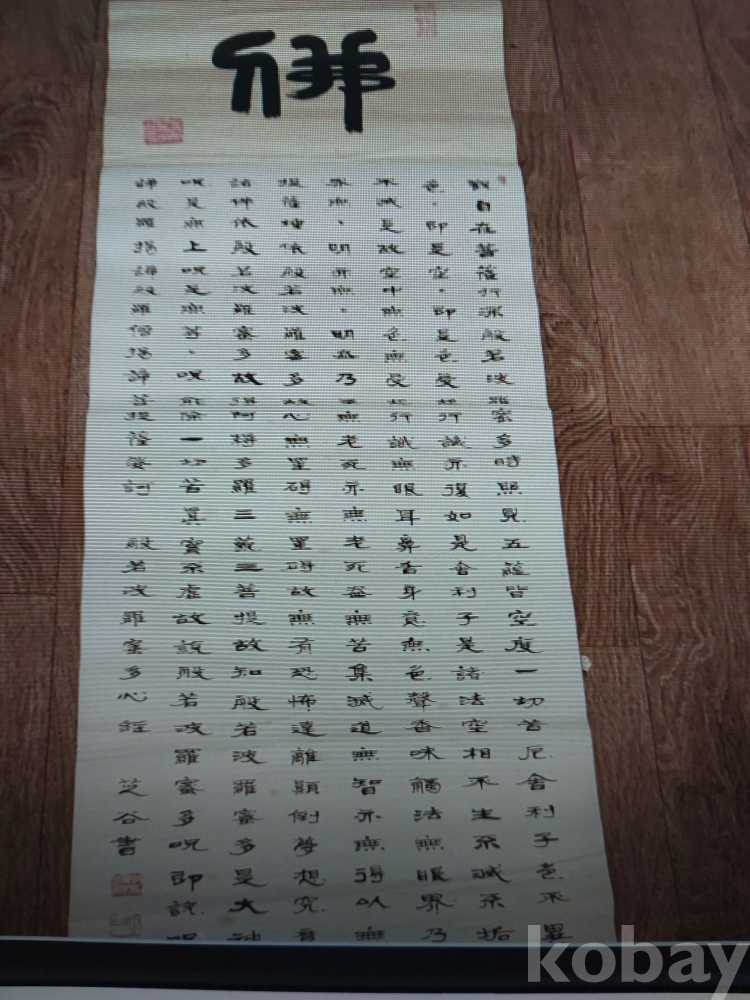 佛
觀自在菩薩行深般若波羅蜜多時照見五蘊皆空度一切苦厄舍利子色不異
色、即是空、即是色受想行識亦復如是舍利子是諸法空相不生不滅不垢
不減是故空中無色無受想行識無眼耳鼻舌身意無色聲香味觸法無眼界乃
界無、明亦無、明盡乃至無老死亦無老死盡無苦集滅道無智亦無得以無
提薩埵依般若波羅蜜多故心無罣碍無罣碍故無有恐怖遠離顛倒夢想究竟
諸佛依般若波羅蜜多故得阿耨多羅三藐三菩提故知般若波羅蜜多是大神
呪是無上呪是無等、呪能除一切苦真實不虛故說般若波羅蜜多呪即說呪
諦般羅揭諦般羅僧揭諦菩提薩婆訶 般若波羅蜜多心經 芝谷書
kobay